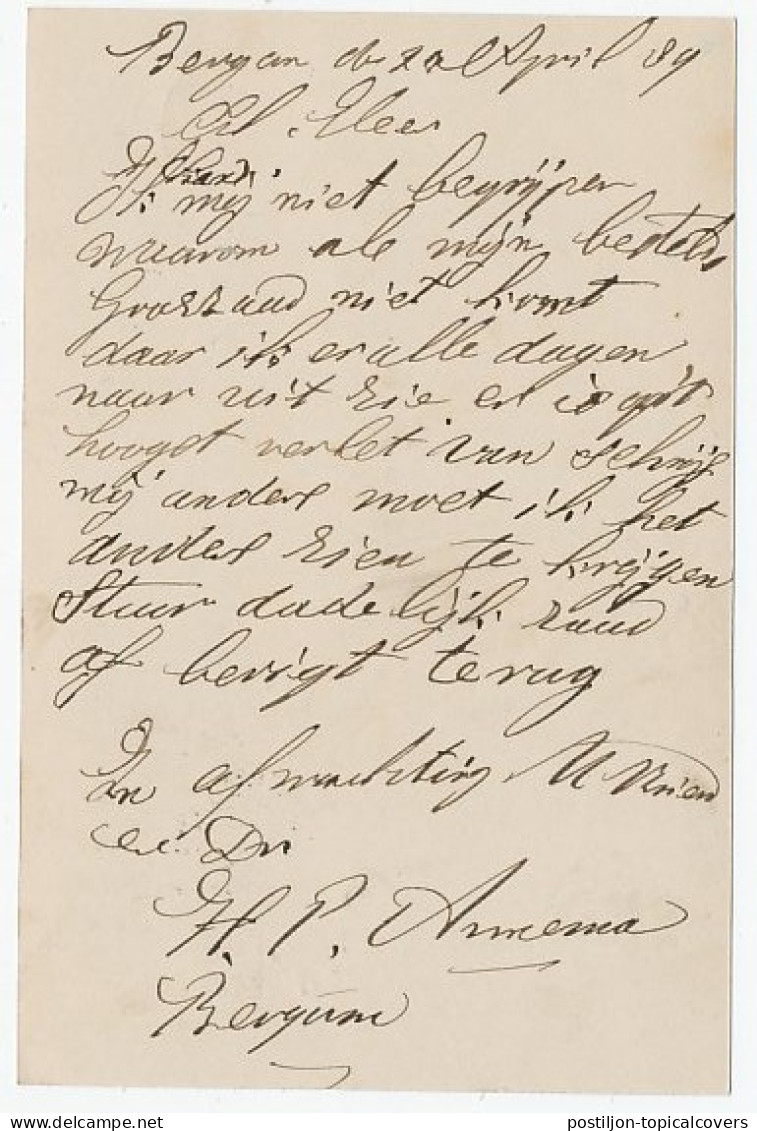 Bergum de 20 April 89
Ed. Heer
Ik kan mij niet begrijpen
waarom als mijn bestelde
Graszaad niet komt
daar ik er alle dagen
naar uit zie er is op't
hoogst verlet van schrijf
mij anders moet ik het
anders zien te krijgen
Stuur dadelijk zaad
af berigt terug
In afwachting U Vriend
en Dr
H. P. Annema
Bergum
postiljon-topicalcovers